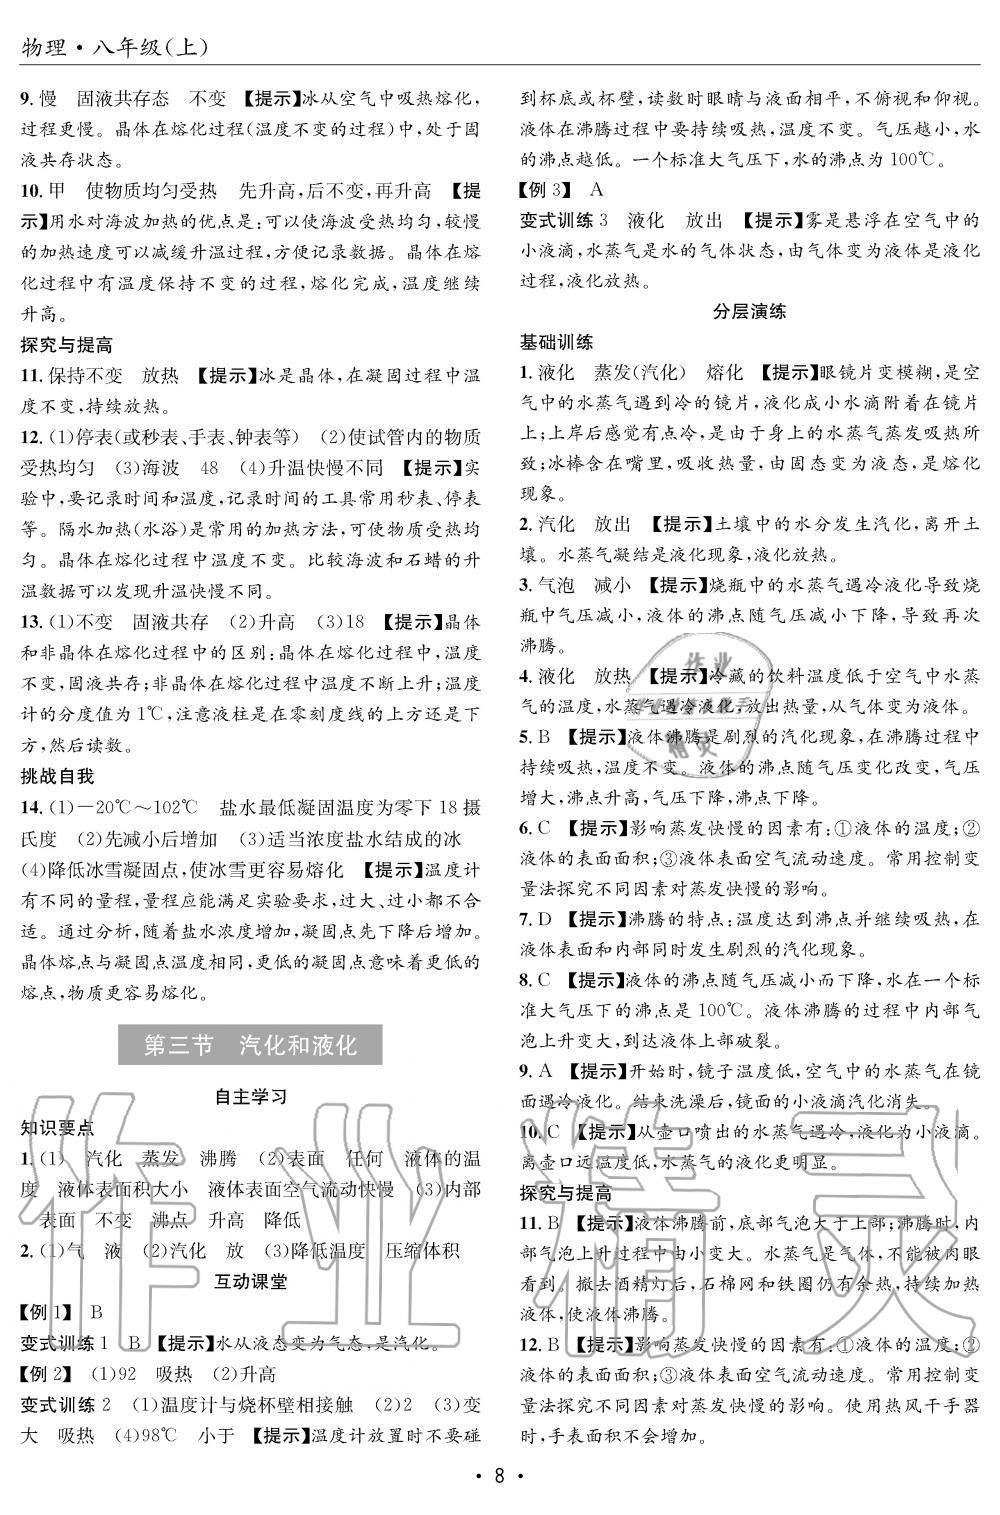 物理·八年级(上)
9.慢　固液共存态　不变　【提示】冰从空气中吸热熔化,
过程更慢。晶体在熔化过程(温度不变的过程)中,处于固
液共存状态。
10.甲　使物质均匀受热　先升高,后不变,再升高　【提
示】用水对海波加热的优点是:可以使海波受热均匀,较慢
的加热速度可以减缓升温过程,方便记录数据。晶体在熔
化过程中有温度保持不变的过程,熔化完成,温度继续
升高。
探究与提高
11.保持不变　放热　【提示】冰是晶体,在凝固过程中温
度不变,持续放热。
12.(1)停表(或秒表、手表、钟表等)　(2)使试管内的物质
受热均匀　(3)海波　48　(4)升温快慢不同　【提示】实
验中,要记录时间和温度,记录时间的工具常用秒表、停表
等。隔水加热(水浴)是常用的加热方法,可使物质受热均
匀。晶体在熔化过程中温度不变。比较海波和石蜡的升
温数据可以发现升温快慢不同。
13.(1)不变　固液共存　(2)升高　(3)18　【提示】晶体
和非晶体在熔化过程中的区别:晶体在熔化过程中,温度
不变,固液共存;非晶体在熔化过程中温度不断上升;温度
计的分度值为1℃,注意液柱是在零刻度线的上方还是下
方,然后读数。
挑战自我
14.(1)-20℃～102℃　盐水最低凝固温度为零下18摄
氏度　(2)先减小后增加　(3)适当浓度盐水结成的冰
(4)降低冰雪凝固点,使冰雪更容易熔化　【提示】温度计
有不同的量程,量程应能满足实验要求,过大、过小都不合
适。通过分析,随着盐水浓度增加,凝固点先下降后增加。
晶体熔点与凝固点温度相同,更低的凝固点意味着更低的
熔点,物质更容易熔化。
第三节　汽化和液化
自主学习
知识要点
1.(1)　汽化　蒸发　沸腾　(2)表面　任何　液体的温
度　液体表面积大小　液体表面空气流动快慢　(3)内部
表面　不变　沸点　升高　降低
2.(1)气　液　(2)汽化　放　(3)降低温度　压缩体积
互动课堂
【例1】　B
变式训练1　B　【提示】水从液态变为气态,是汽化。
【例2】　(1)92　吸热　(2)升高
变式训练2　(1)温度计与烧杯壁相接触　(2)2　(3)变
大　吸热　(4)98℃　小于　【提示】温度计放置时不要碰
到杯底或杯壁,读数时眼睛与液面相平,不俯视和仰视。
液体在沸腾过程中要持续吸热,温度不变。气压越小,水
的沸点越低。一个标准大气压下,水的沸点为100℃。
【例3】　A
变式训练3　液化　放出　【提示】雾是悬浮在空气中的
小液滴,水蒸气是水的气体状态,由气体变为液体是液化
过程,液化放热。
分层演练
基础训练
1.液化　蒸发(汽化)　熔化　【提示】眼镜片变模糊,是空
气中的水蒸气遇到冷的镜片,液化成小水滴附着在镜片
上;上岸后感觉有点冷,是由于身上的水蒸气蒸发吸热所
致;冰棒含在嘴里,吸收热量,由固态变为液态,是熔化
现象。
2.汽化　放出　【提示】土壤中的水分发生汽化,离开土
壤。水蒸气凝结是液化现象,液化放热。
3.气泡　减小　【提示】烧瓶中的水蒸气遇冷液化导致烧
瓶中气压减小,液体的沸点随气压减小下降,导致再次
沸腾。
4.液化　放热　【提示】冷藏的饮料温度低于空气中水蒸
气的温度,水蒸气遇冷液化,放出热量,从气体变为液体。
5.B　【提示】液体沸腾是剧烈的汽化现象,在沸腾过程中
持续吸热,温度不变。液体的沸点随气压变化改变,气压
增大,沸点升高,气压下降,沸点下降。
6.C　【提示】影响蒸发快慢的因素有:①液体的温度;②
液体的表面面积;③液体表面空气流动速度。常用控制变
量法探究不同因素对蒸发快慢的影响。
7.D　【提示】沸腾的特点:温度达到沸点并继续吸热,在
液体表面和内部同时发生剧烈的汽化现象。
8.C　【提示】液体的沸点随气压减小而下降,水在一个标
准大气压下的沸点是100℃。液体沸腾的过程中内部气
泡上升变大,到达液体上部破裂。
9.A　【提示】开始时,镜子温度低,空气中的水蒸气在镜
面遇冷液化。结束洗澡后,镜面的小液滴汽化消失。
10.C　【提示】从壶口喷出的水蒸气遇冷,液化为小液滴。
离壶口远温度低,水蒸气的液化更明显。
探究与提高
11.B　【提示】液体沸腾前,底部气泡大于上部;沸腾时,内
部气泡上升过程中由小变大。水蒸气是气体,不能被肉眼
看到。撤去酒精灯后,石棉网和铁圈仍有余热,持续加热
液体,使液体沸腾。
12.B　【提示】影响蒸发快慢的因素有:①液体的温度;②
液体的表面面积;③液体表面空气流动速度。常用控制变
量法探究不同因素对蒸发快慢的影响。使用热风干手器
时,手表面积不会增加。
·8·
作业精灵
作业
精灵